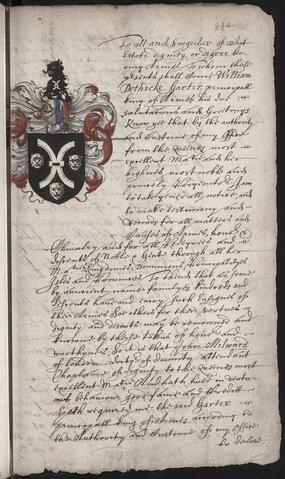 344
To all and Singular of what
Estate, dignity, or degree
Armes To whom these
presents shall Come William
Dethicke Garter principall
king of Armes his due
salutations and Greetings
know yee that by the authority
and Custome of my Office
from the Queenes most
excellent Matie and her
highnes most noble and
princely Progenitors I am
to take generall notice and
to make testimony and
Records for all matters and
Causes of Armes, honor
Chivalry and for all Pedigrees and
Discents of Noble & Gent though all
Kingdomes, Dominions, Principalityes
Isles and Provinces To th'end that as some
by auncient names familyes kindreds and
Discents have and enioy such Ensignes of
these Armes So others for their vertues
dignity and deserts may be renowned and
knowne by these tokens of honor and
worthynes, So it is that John Milward
of London of Divinity attendant
Chaplaine of dignity to the Queenes most
Excellent Matie And hath used in vertu-
ous behaviour good fame and Creditt
Hath required me the said Garter
principall king of Armes according to
the Authority and Custome of my Office
to declare